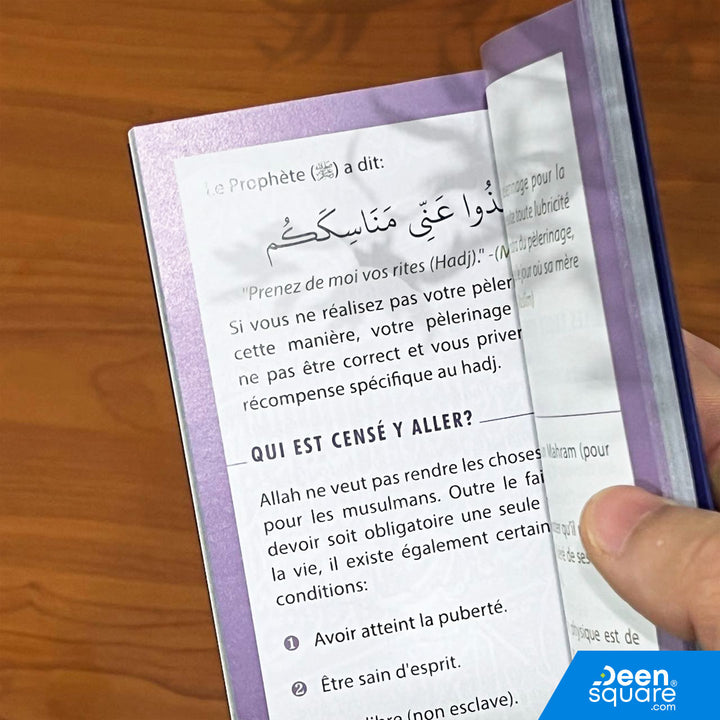 Le Prophète (ﷺ) a dit:
ـذُوا عَنِّي مَنَاسِكَكُم
"Prenez de moi vos rites (Hadj)." -(M
Si vous ne réalisez pas votre pèler
cette manière, votre pèlerinage
ne pas être correct et vous priver
récompense spécifique au hadj.
QUI EST CENSÉ Y ALLER?
Allah ne veut pas rendre les choses
pour les musulmans. Outre le fai
devoir soit obligatoire une seule
la vie, il existe également certain
conditions:
1 Avoir atteint la puberté.
2 Être sain d'esprit.
libre (non esclave).
pour la
toute lubricité
du pèlerinage,
jour où sa mère
Mahram (pour
qu'il
de ses
physique est de
Deen
square®
.com